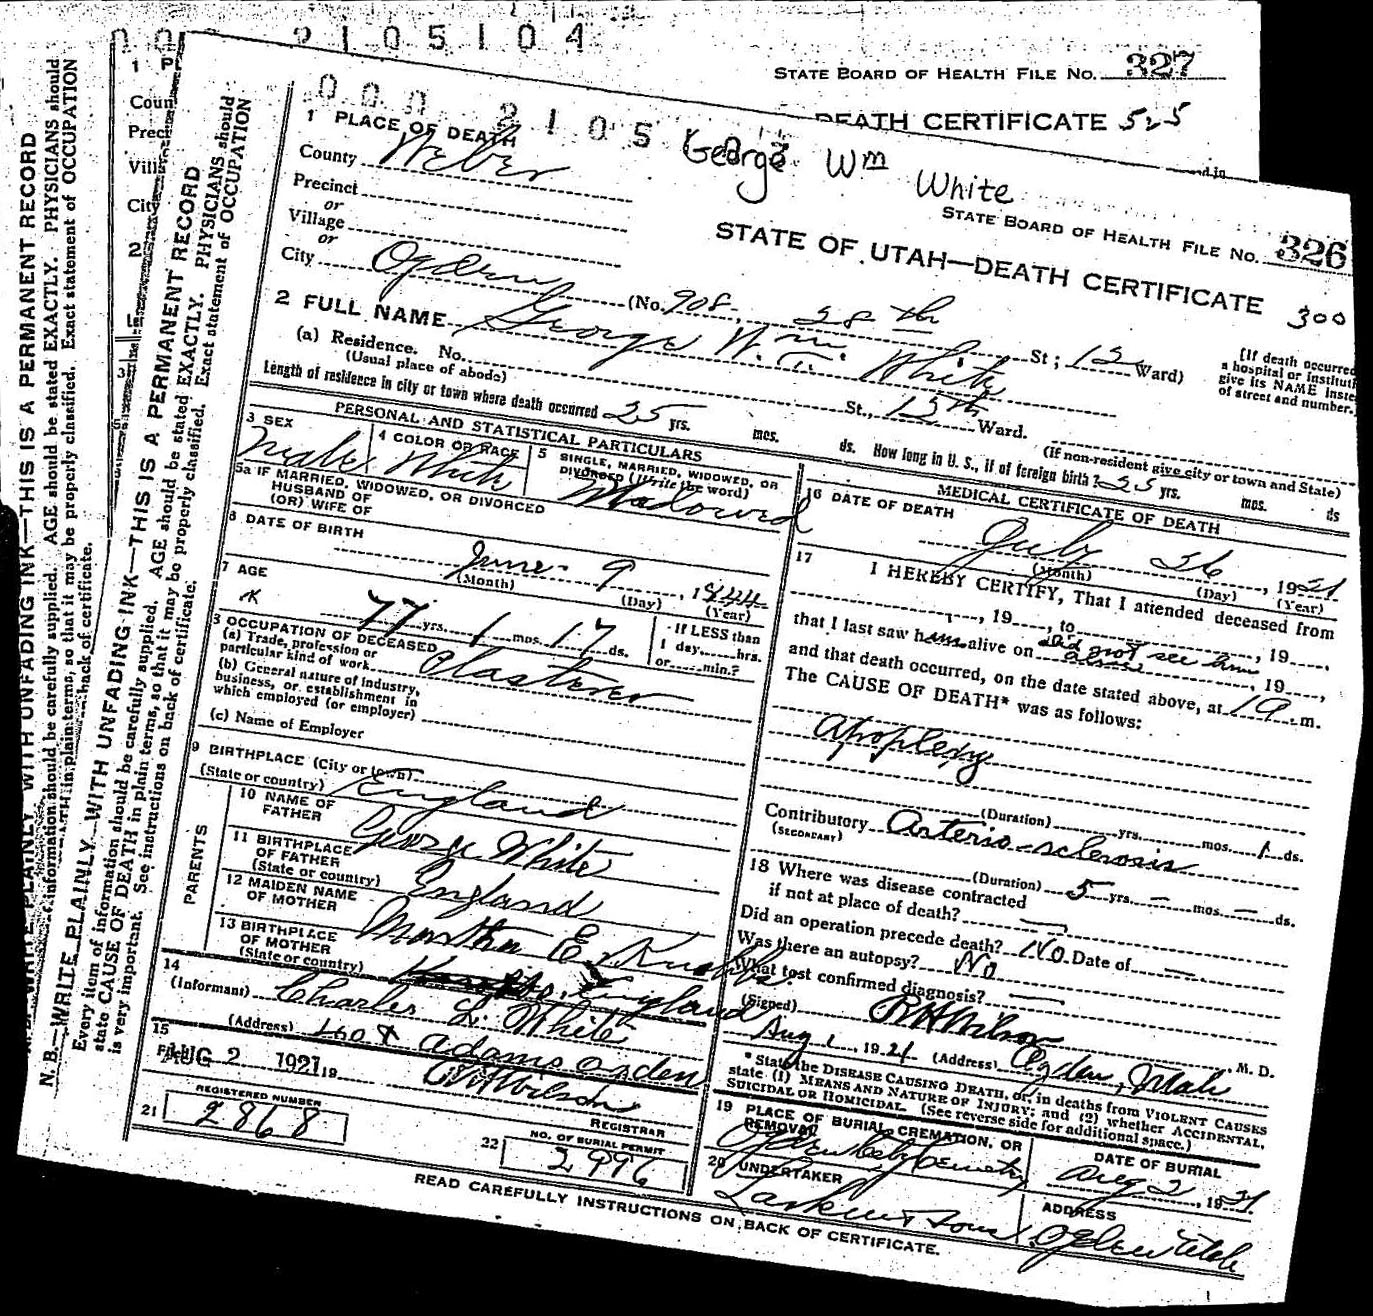 000 2105104
STATE BOARD OF HEALTH FILE NO. 327
DEATH CERTIFICATE 525
000 2105
George Wm White
STATE BOARD OF HEALTH FILE NO. 326
STATE OF UTAH—DEATH CERTIFICATE 300
1 PLACE OF DEATH
County Weber
Precinct
or
Village
or
City Ogden (No. 908, 28th St; 12 Ward)
(If death occurred
a hospital or institut
give its NAME inste
of street and number.)
2 FULL NAME George Wm. White
(a) Residence. No. St., 12th Ward.
(Usual place of abode) (If non-resident give city or town and State)
Length of residence in city or town where death occurred 25 yrs. mos. ds. How long in U. S., if of foreign birth? 25 yrs. mos. ds
PERSONAL AND STATISTICAL PARTICULARS
3 SEX Male
4 COLOR OR RACE White
5 SINGLE, MARRIED, WIDOWED, OR
DIVORCED (Write the word)
Widowed
5a IF MARRIED, WIDOWED, OR DIVORCED
HUSBAND OF
(OR) WIFE OF
6 DATE OF BIRTH
June 9, 1844
(Month) (Day) (Year)
7 AGE
77 yrs. 1 mos. 17 ds.
If LESS than
1 day......hrs.
or......min.?
8 OCCUPATION OF DECEASED
(a) Trade, profession or
particular kind of work Plasterer
(b) General nature of industry,
business, or establishment in
which employed (or employer)
(c) Name of Employer
9 BIRTHPLACE (City or town)
(State or country) England
PARENTS
10 NAME OF
FATHER George White
11 BIRTHPLACE
OF FATHER
(State or country) England
12 MAIDEN NAME
OF MOTHER Martha E.
13 BIRTHPLACE
OF MOTHER
(State or country) England
14
(Informant) Charles L. White
(Address) Adams Ogden
15
Filed AUG 2 1921 19
Wilson
REGISTRAR
21 REGISTERED NUMBER
2868
22 NO. OF BURIAL PERMIT
2996
MEDICAL CERTIFICATE OF DEATH
16 DATE OF DEATH
July 26, 1921
(Month) (Day) (Year)
17 I HEREBY CERTIFY, That I attended deceased from
, 19, to , 19,
that I last saw him alive on did not see him alive, 19,
and that death occurred, on the date stated above, at m.
The CAUSE OF DEATH* was as follows:
Apoplexy
(Duration) yrs. mos. 1 ds.
Contributory Arterio-sclerosis
(SECONDARY)
(Duration) 5 yrs. — mos. — ds.
18 Where was disease contracted
if not at place of death? —
Did an operation precede death? No. Date of —
Was there an autopsy? No
What test confirmed diagnosis? —
(Signed) Wilson M. D.
Aug 1, 1921 (Address) Ogden, Utah
* State the DISEASE CAUSING DEATH, or, in deaths from VIOLENT CAUSES
state (1) MEANS AND NATURE OF INJURY; and (2) whether ACCIDENTAL,
SUICIDAL OR HOMICIDAL. (See reverse side for additional space.)
19 PLACE OF BURIAL, CREMATION, OR
REMOVAL
Ogden City Cemetery
DATE OF BURIAL
Aug 2, 1921
20 UNDERTAKER
Larkin & Sons
ADDRESS
Ogden Utah
READ CAREFULLY INSTRUCTIONS ON BACK OF CERTIFICATE.
N. B.—WRITE PLAINLY WITH UNFADING INK—THIS IS A PERMANENT RECORD
Every item of information should be carefully supplied. AGE should be stated EXACTLY. PHYSICIANS should
state CAUSE OF DEATH in plain terms, so that it may be properly classified. Exact statement of OCCUPATION
is very important. See instructions on back of certificate.